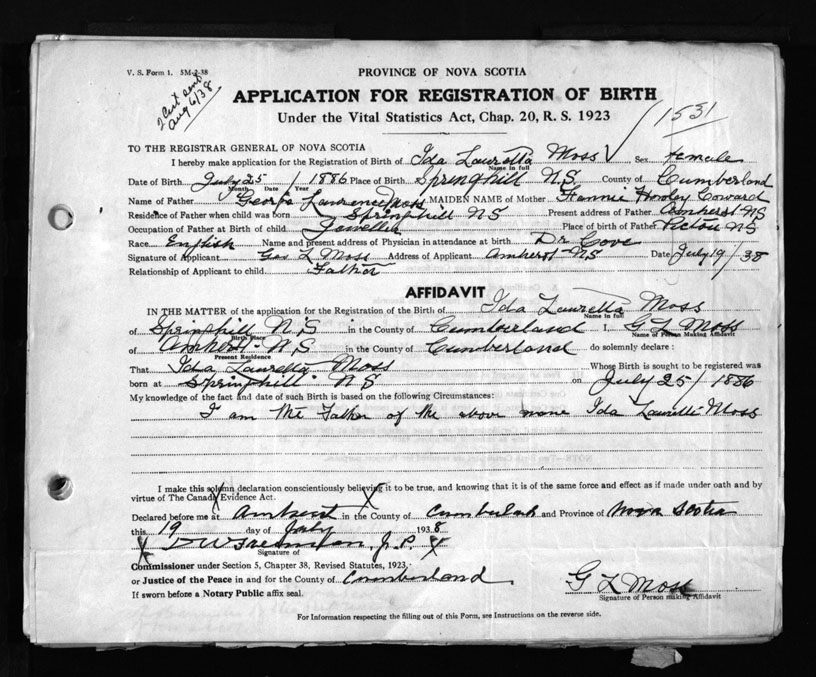 V. S. Form 1. 5M-2-38
2 Cert sent
Aug 6/38
PROVINCE OF NOVA SCOTIA
APPLICATION FOR REGISTRATION OF BIRTH
Under the Vital Statistics Act, Chap. 20, R. S. 1923
1531
TO THE REGISTRAR GENERAL OF NOVA SCOTIA
I hereby make application for the Registration of Birth of Ida Lauretta Moss Sex female
Name in full
Date of Birth July 25 / 1886 Place of Birth Springhill N.S. County of Cumberland
Month Day Year
Name of Father George Laurence Moss MAIDEN NAME of Mother Fannie Coward
Residence of Father when child was born Springhill NS Present address of Father Amherst NS
Occupation of Father at Birth of child Jeweller Place of birth of Father Pictou NS
Race English Name and present address of Physician in attendance at birth Dr Cove
Signature of Applicant Geo L Moss Address of Applicant Amherst NS Date July 19/38
Relationship of Applicant to child Father
AFFIDAVIT
IN THE MATTER of the application for the Registration of the Birth of Ida Lauretta Moss
Name in full
of Springhill N.S in the County of Cumberland I, G L Moss
Birth Place Name of Person Making Affidavit
of Amherst N.S in the County of Cumberland do solemnly declare:
Present Residence
That Ida Lauretta Moss Whose Birth is sought to be registered was
born at Springhill N S on July 25 / 1886
My knowledge of the fact and date of such Birth is based on the following Circumstances:
I am the Father of the above name Ida Lauretta Moss
I make this solemn declaration conscientiously believing it to be true, and knowing that it is of the same force and effect as if made under oath and by
virtue of The Canada Evidence Act.
Declared before me at Amherst in the County of Cumberland and Province of Nova Scotia
this 19 day of July 1938
X J.P. X
Signature of
Commissioner under Section 5, Chapter 38, Revised Statutes, 1923,
or Justice of the Peace in and for the County of Cumberland
G L Moss
Signature of Person making Affidavit
If sworn before a Notary Public affix seal.
For Information respecting the filling out of this Form, see Instructions on the reverse side.